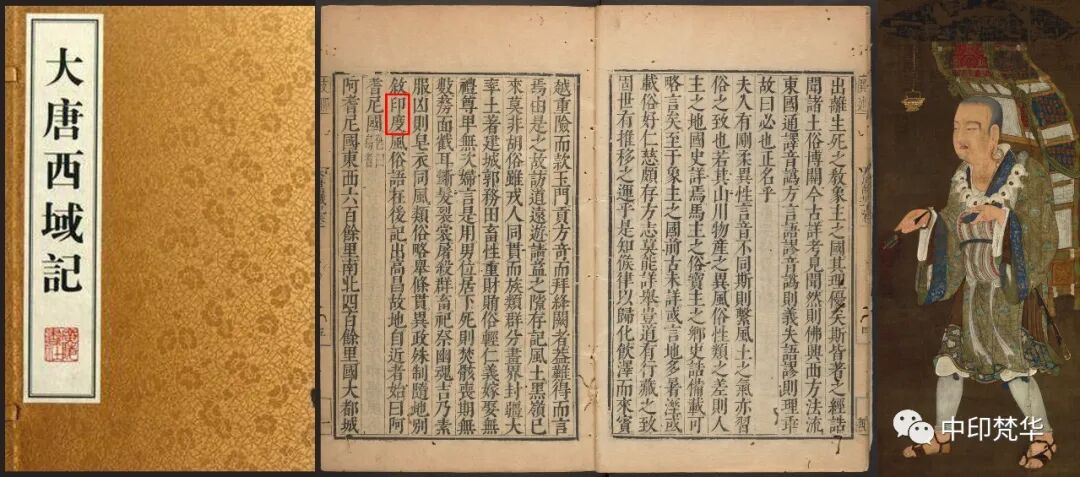 大唐西域記
出離生死之敎象主之國其理優矣斯皆著之經誥
聞諸土俗博關今古詳考見聞然則佛興西方法流
東國通譯音譌方言語謬音譌則義失語謬則理乖
故曰必也正名乎
夫人有剛柔異性言音不同斯則繫風土之氣亦習
俗之致也若其山川物產之異風俗性類之差則人
主之地國史詳焉馬主之俗寶主之鄉史誥備載可
略言矣至于象主之國前古未詳或言地多暑濕或
載俗好仁慈頗存方志莫能詳舉豈道有行藏之致
固世有推移之運乎是知候律以歸化飮澤而來賓
越重險而款玉門貢方奇而拜絳闕者蓋難得而言
焉由是之故訪道遠遊請益之隙存記風土黑嶺已
來莫非胡俗雖戎人同貫而族類群分畫界封疆大
率土著建城郭務田畜性重財賄俗輕仁義嫁娶無
禮尊卑無次婦言是用男位居下死則焚骸喪期無
數剺面截耳斷髮裂裳屠殺群畜祀祭幽魂吉乃素
服凶則皂衣同風類俗略舉條貫異政殊制隨地別
敘印度風俗語在後記出高昌故地自近者始曰阿
耆尼國
阿耆尼國東西六百餘里南北四百餘里國大都城
中印梵华